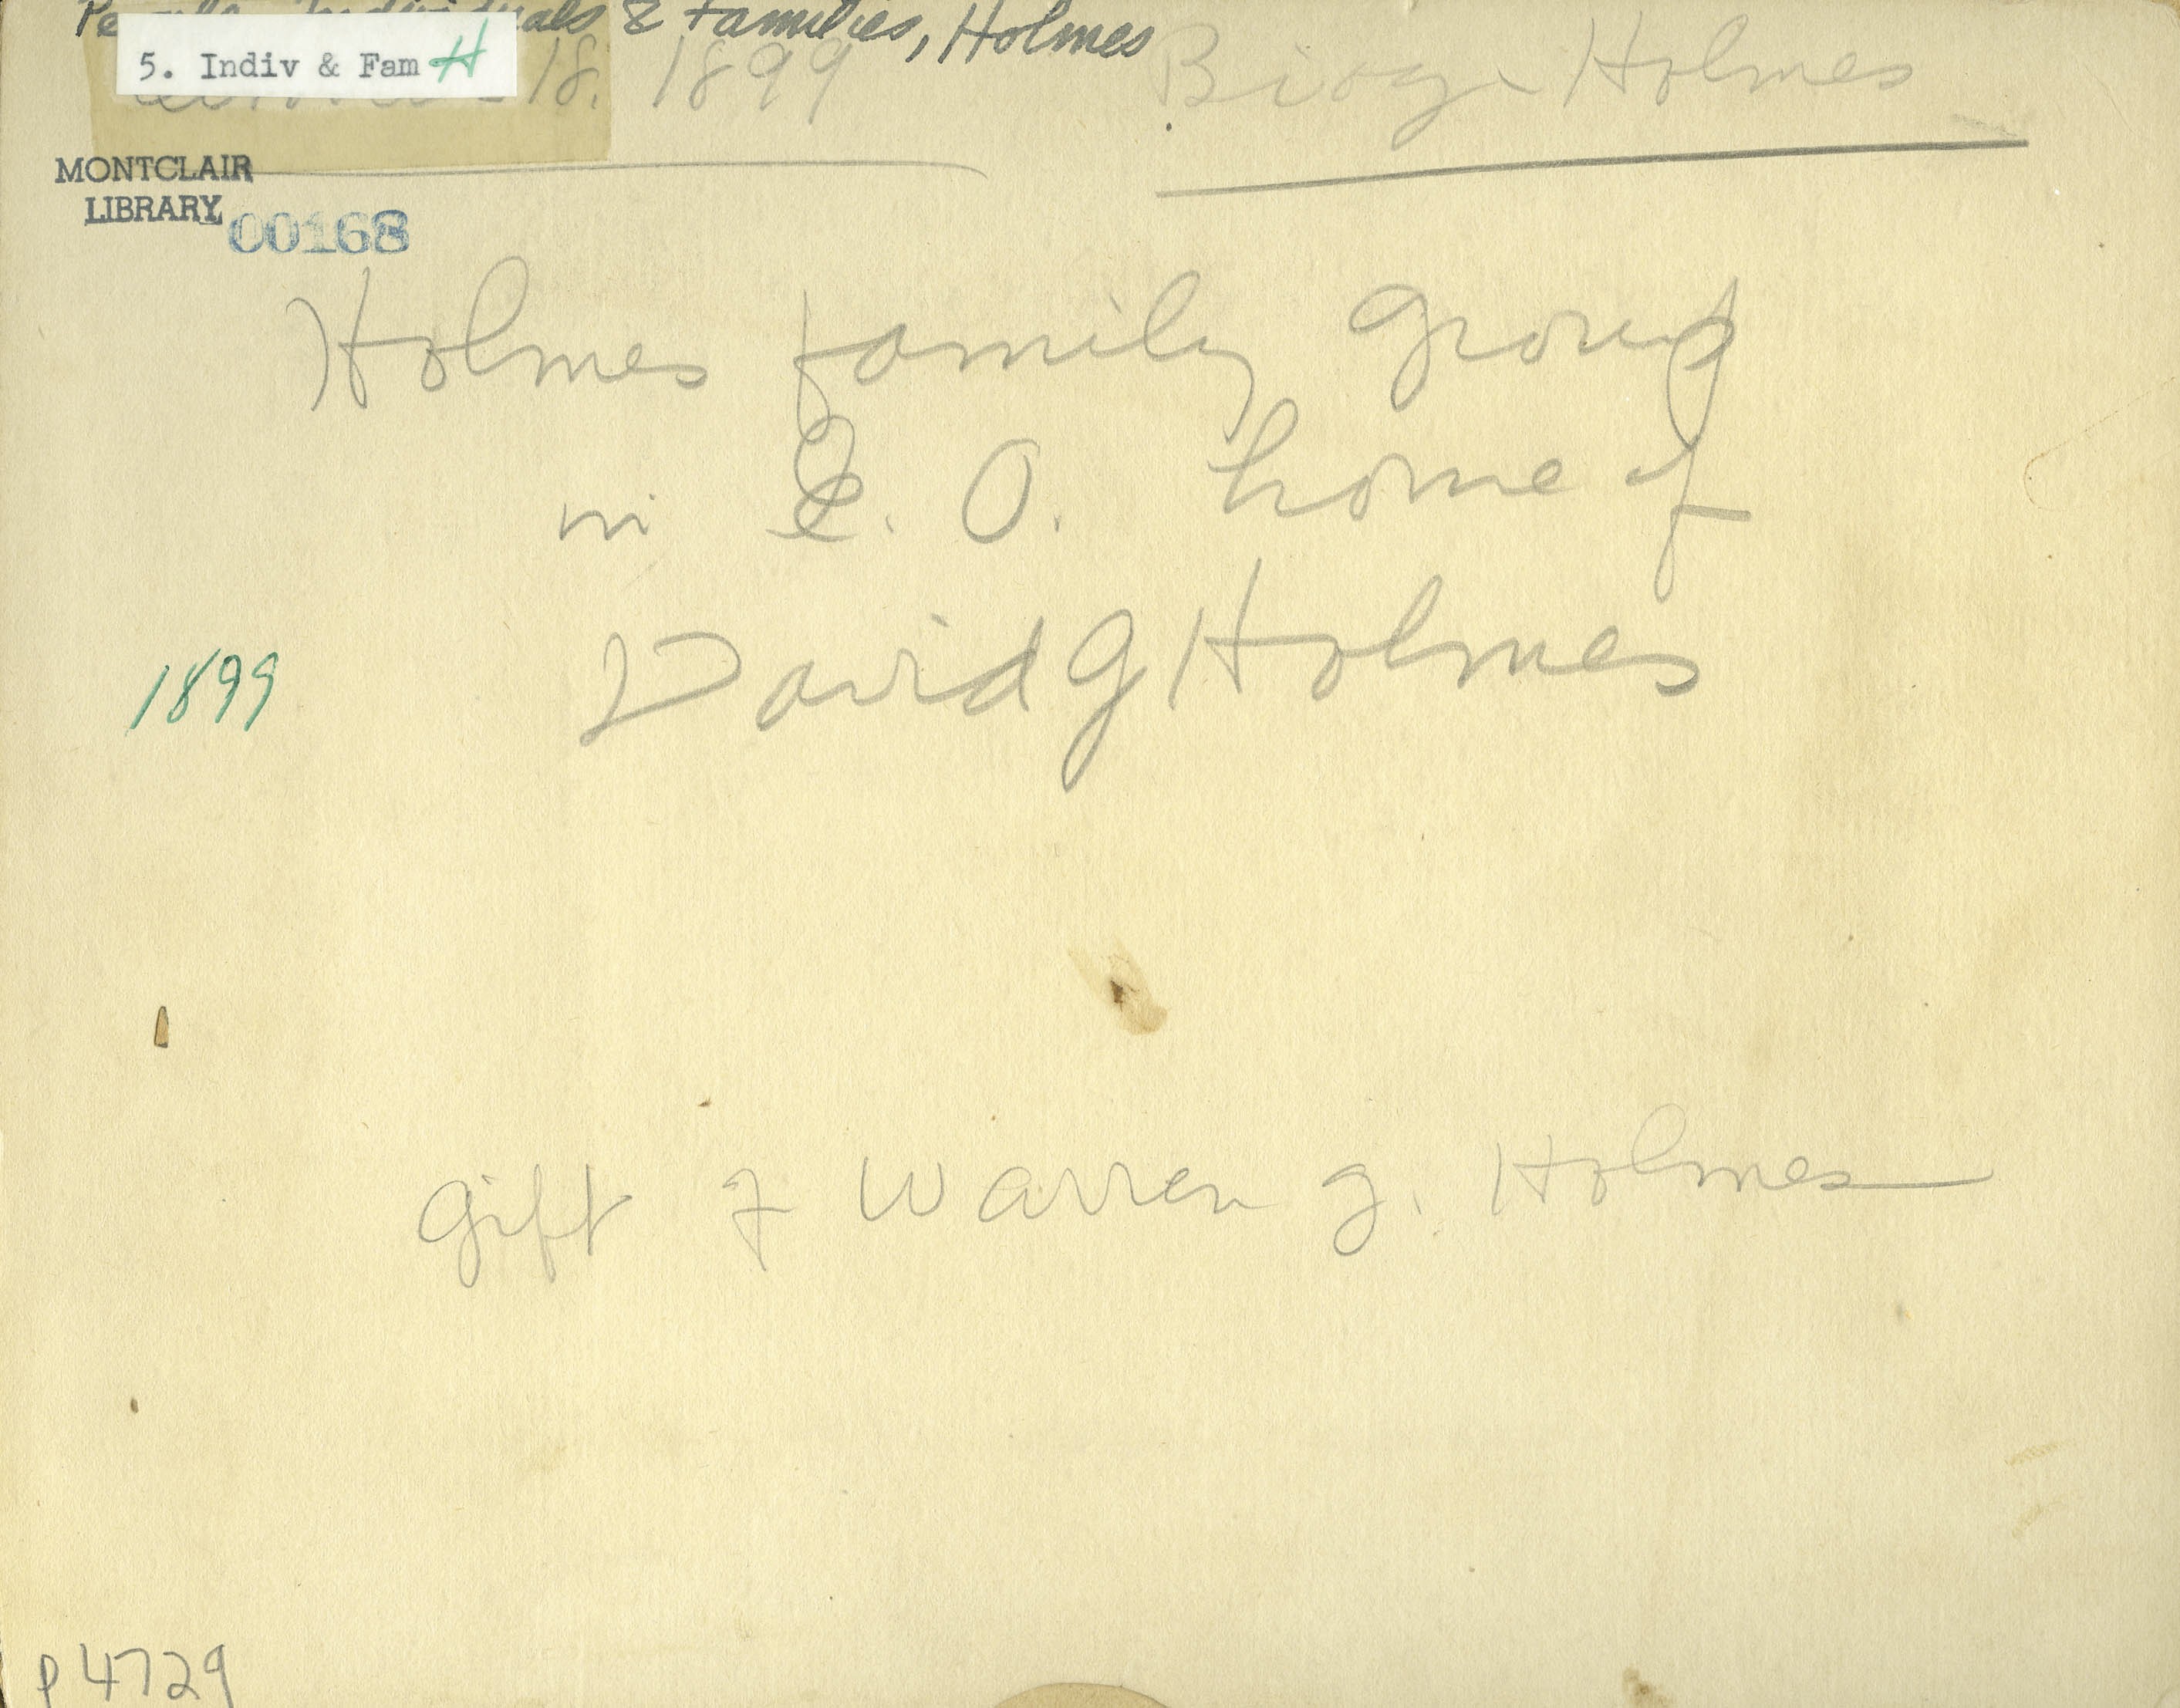 Individuals & Families, Holmes
5. Indiv & Fam H
18. 1899
Biog - Holmes
MONTCLAIR
LIBRARY
00168
Holmes family group
in E. O. home of
David G Holmes
1899
Gift of Warren G. Holmes
P4729